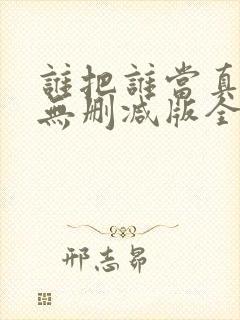 誰把誰當真
無删减版全
邢志昂